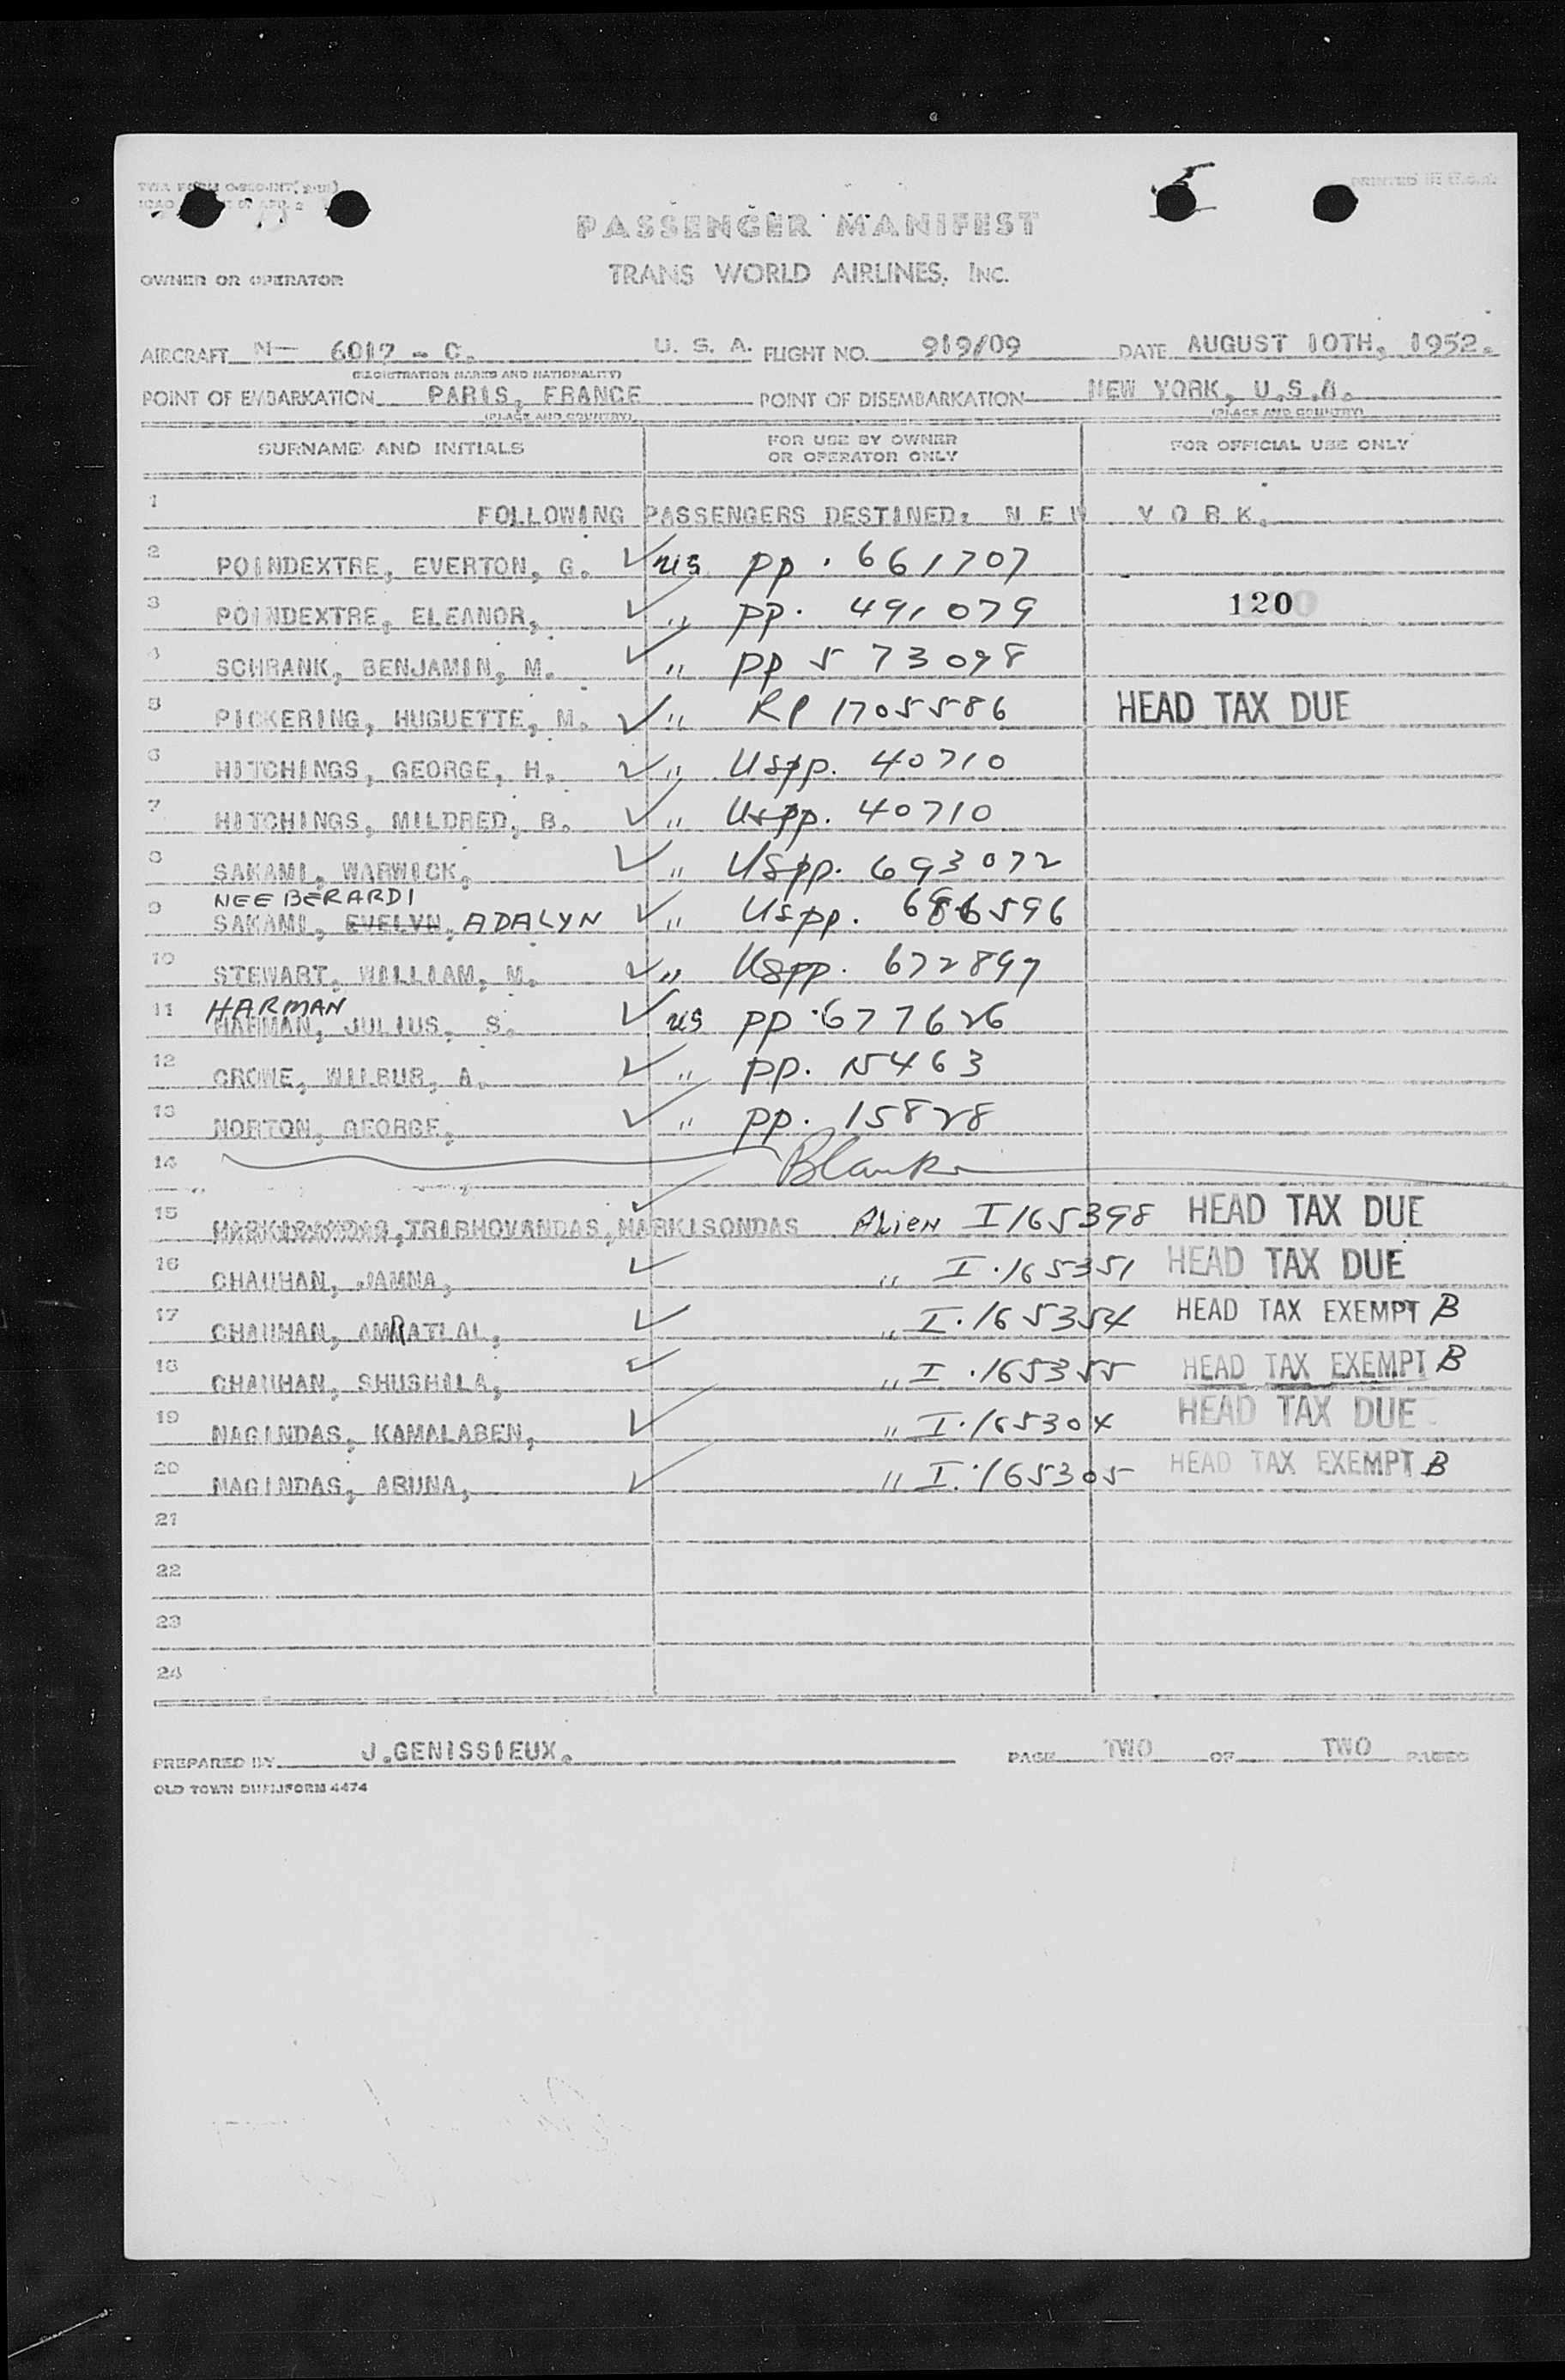 PRINTED IN U.S.A.
PASSENGER MANIFEST
OWNER OR OPERATOR TRANS WORLD AIRLINES, INC.
AIRCRAFT N- 6017 - C. U. S. A. FLIGHT NO. 919/09 DATE AUGUST 10TH, 1952.
(REGISTRATION MARKS AND NATIONALITY)
POINT OF EMBARKATION PARIS, FRANCE POINT OF DISEMBARKATION NEW YORK, U.S.A.
(PLACE AND COUNTRY) (PLACE AND COUNTRY)
SURNAME AND INITIALS FOR USE BY OWNER OR OPERATOR ONLY FOR OFFICIAL USE ONLY
1 FOLLOWING PASSENGERS DESTINED: N E W Y O R K.
2 POINDEXTRE, EVERTON, G. ✓ US pp. 661707
3 POINDEXTRE, ELEANOR, ✓ " pp. 491079 120
4 SCHRANK, BENJAMIN, M. ✓ " pp 573098
5 PICKERING, HUGUETTE, M. ✓ " RP 1705586 HEAD TAX DUE
6 HITCHINGS, GEORGE, H. ✓ " USpp. 40710
7 HITCHINGS, MILDRED, B. ✓ " USpp. 40710
8 SAKAMI, WARWICK, ✓ " USpp. 693072
NEE BERARDI
9 SAKAMI, EVELYN, ADALYN ✓ " USpp. 686596
10 STEWART, WILLIAM, M. ✓ " USpp. 672897
HARMAN
11 HARMAN, JULIUS, S. ✓ US pp. 677626
12 CROWE, WILBUR, A. ✓ " pp. 15463
13 NORTON, GEORGE, ✓ " pp. 15828
14 Blank
15 TRIBHOVANDAS, HARKISONDAS ✓ Alien I 165398 HEAD TAX DUE
16 CHAUHAN, JAMNA, ✓ " I.165351 HEAD TAX DUE
17 CHAUHAN, AMRATLAL, ✓ " I.165354 HEAD TAX EXEMPT B
18 CHAUHAN, SHUSHILA, ✓ " I.165355 HEAD TAX EXEMPT B
19 NAGINDAS, KAMALABEN, ✓ " I.165304 HEAD TAX DUE
20 NAGINDAS, ARUNA, ✓ " I.165305 HEAD TAX EXEMPT B
21
22
23
24
PREPARED BY J.GENISSIEUX. PAGE TWO OF TWO PAGES
OLD TOWN DUPLIFORM 4474